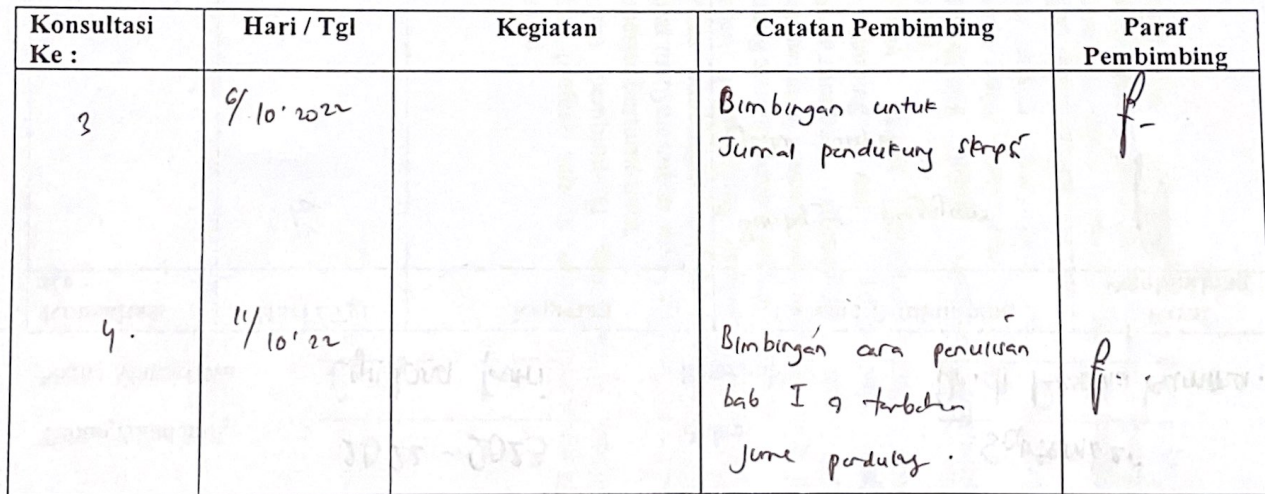 Konsultasi Ke :
Hari / Tgl
Kegiatan
Catatan Pembimbing
Paraf Pembimbing
3
6/10'2022
Bimbingan untuk
Jurnal pendukung skripsi
4.
11/10'22
Bimbingan cara penulisan
bab I